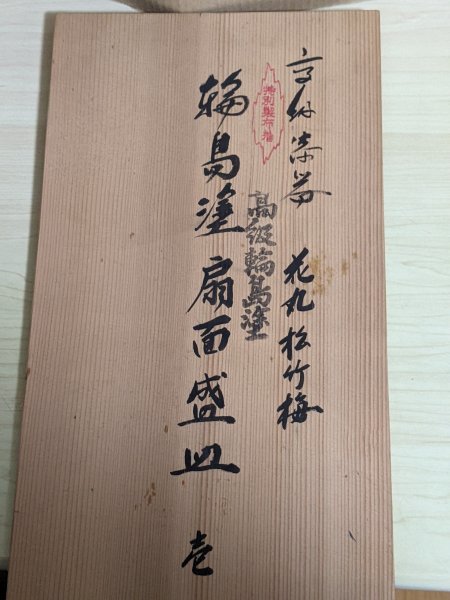 漆器 花丸松竹梅
特別製布着
高級輪島塗
輪島塗扇面盛皿 壱